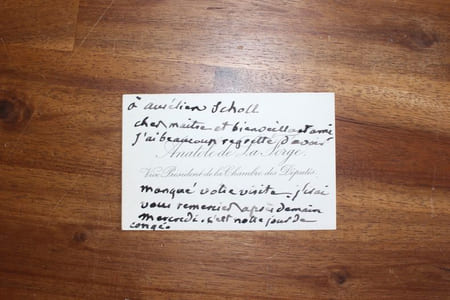 à aurélien Scholl
cher maitre et bienveillant ami
j'ai beaucoup regretté d'avoir
Anatole de La Forge,
Vice-Président de la Chambre des Députés.
manqué votre visite. j'irai
vous remercier après demain
mercredi. c'est notre jour de
congé.